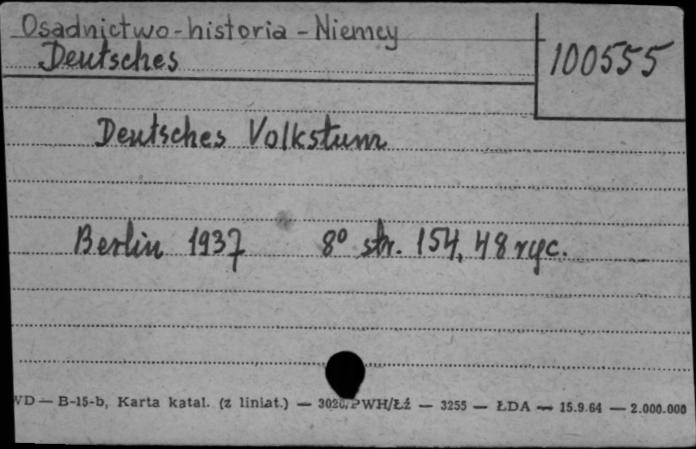 Osadnictwo-historia-Niemcy
Deutsches
100555
Deutsches Volkstum
Berlin 1937 8° str. 154, 48 ryc.
WD — B-15-b, Karta katal. (z liniat.) — 3020/PWH/Łź — 3255 — ŁDA — 15.9.64 — 2.000.000